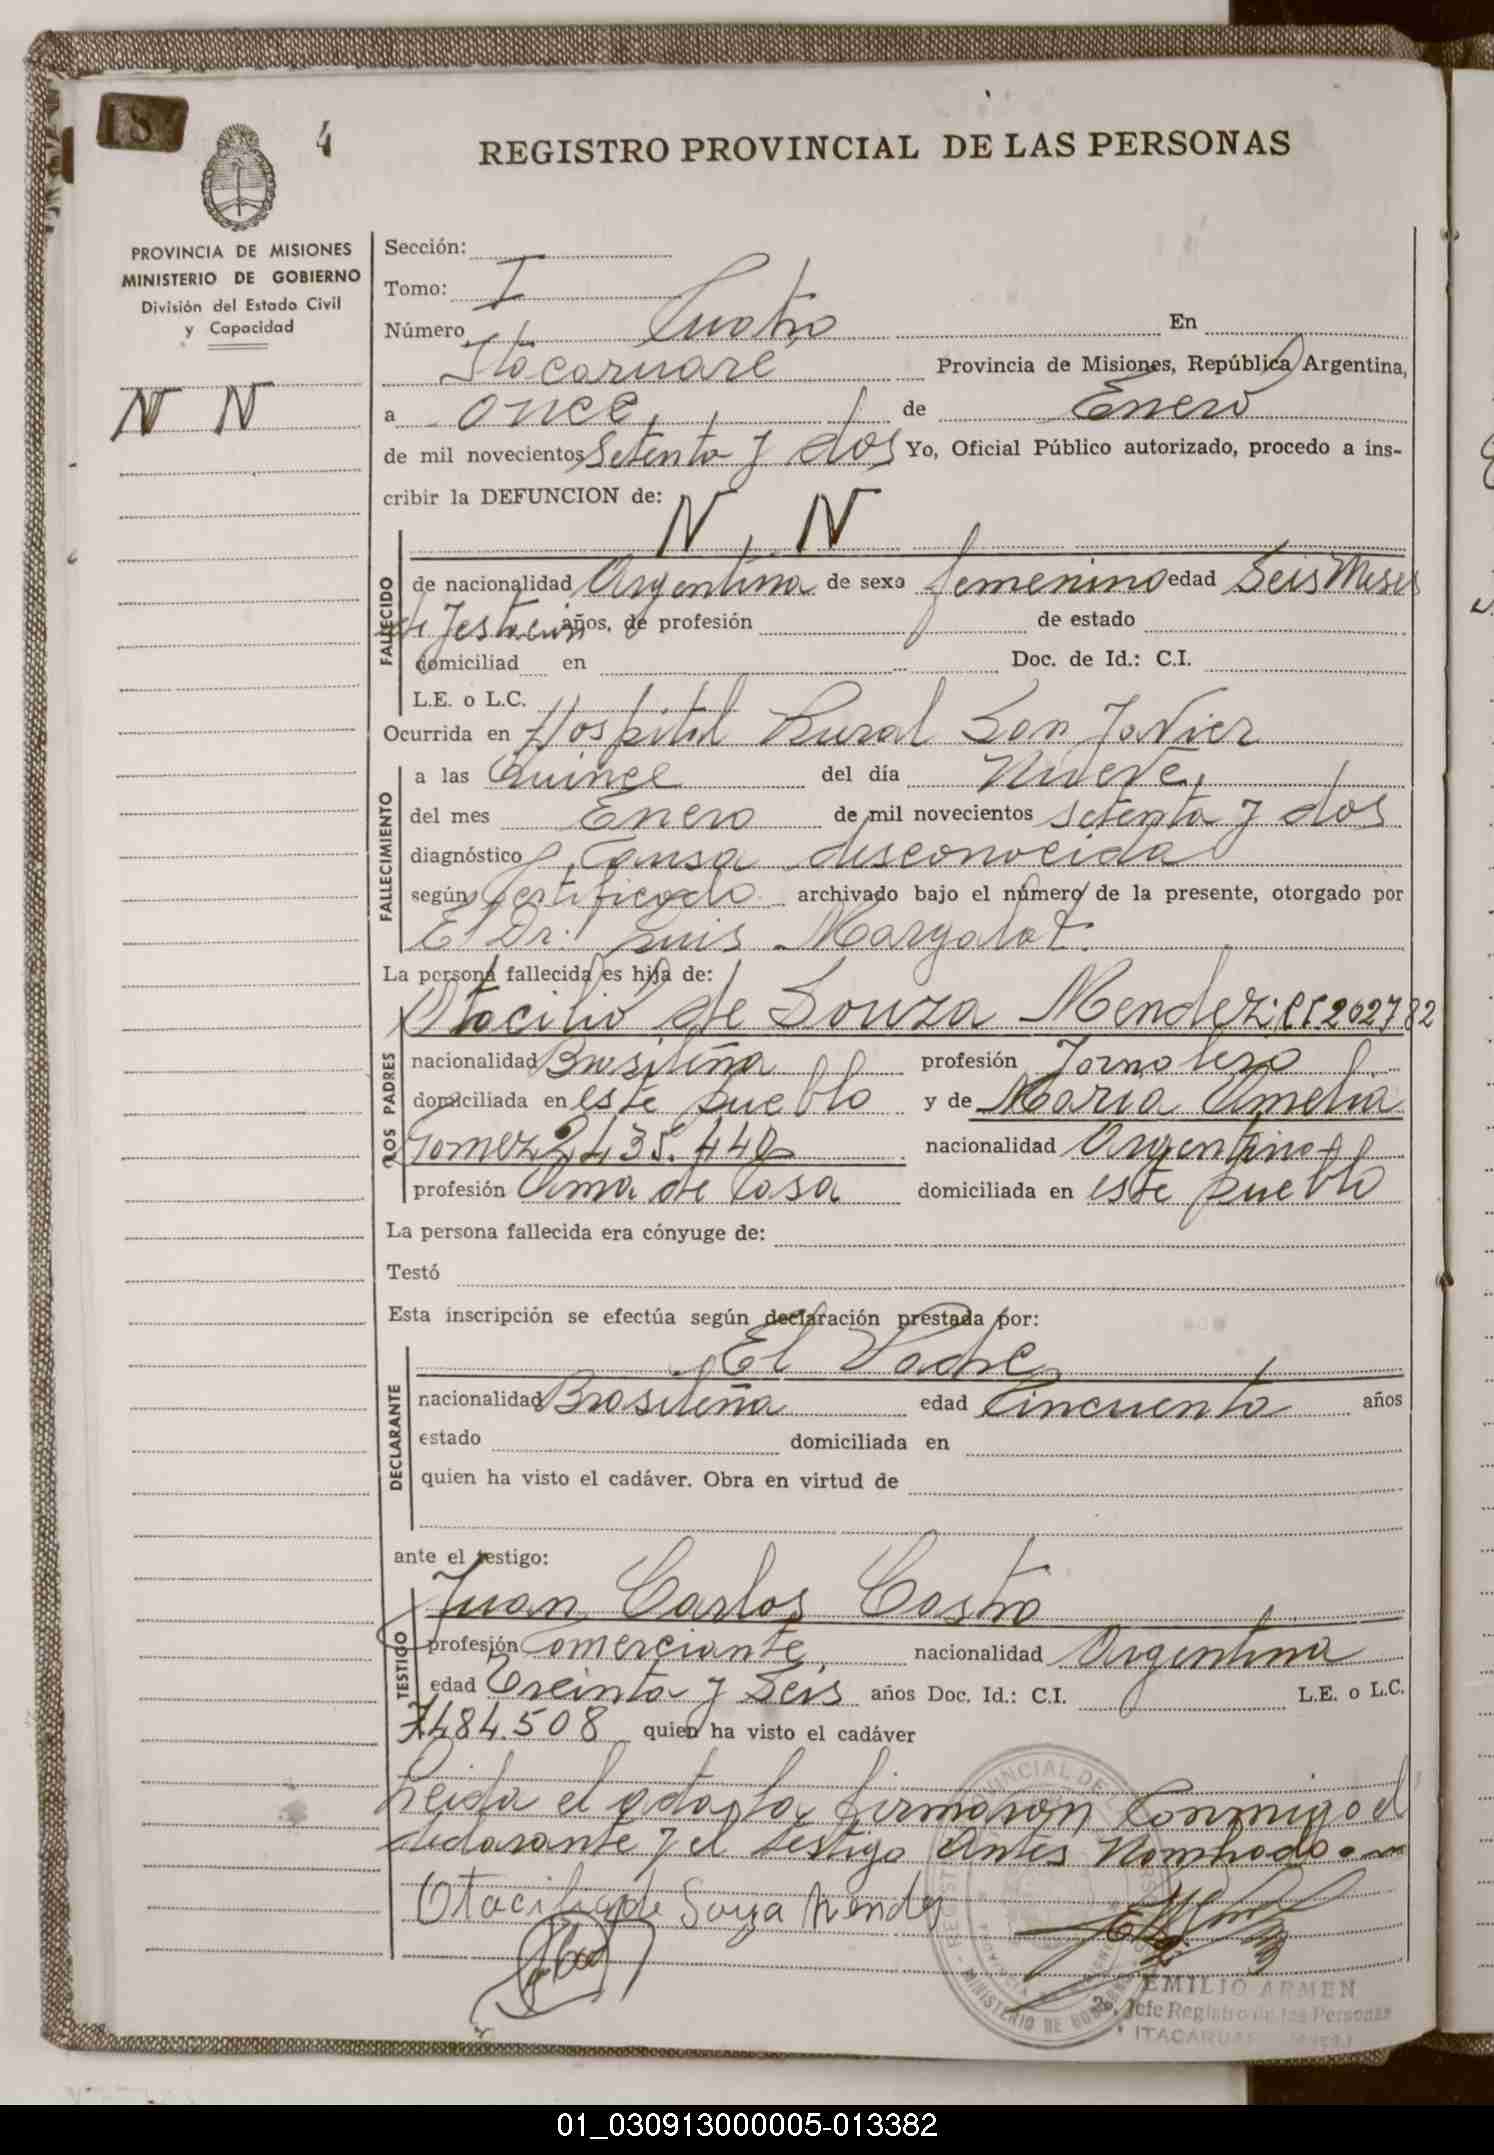 187
4
REGISTRO PROVINCIAL DE LAS PERSONAS
PROVINCIA DE MISIONES
MINISTERIO DE GOBIERNO
División del Estado Civil
y Capacidad
N N
Sección:
Tomo: I
Número Cuatro En
Itacaruare Provincia de Misiones, República Argentina,
a once, de Enero
de mil novecientos Setenta y dos Yo, Oficial Público autorizado, procedo a ins-
cribir la DEFUNCION de:
N. N
FALLECIDO
de nacionalidad Argentina de sexo femenino edad Seis Meses
de Jestacion años, de profesión de estado
domiciliad en Doc. de Id.: C.I.
L.E. o L.C.
Ocurrida en Hospital Rural San Javier
FALLECIMIENTO
a las Quince del día Nueve,
del mes Enero de mil novecientos setenta y dos
diagnóstico Causa desconocida
según certificado archivado bajo el número de la presente, otorgado por
El Dr: Luis Margalot.
La persona fallecida es hija de:
LOS PADRES
Otacilio de Souza Mendez: CI 202782
nacionalidad Brasileña profesión Jornalero
domiciliada en este pueblo y de Maria Amelia
Gomez 2.435.440 nacionalidad Argentina
profesión Ama de Casa domiciliada en este pueblo
La persona fallecida era cónyuge de:
Testó
Esta inscripción se efectúa según declaración prestada por:
DECLARANTE
El Padre
nacionalidad Brasileña edad Cincuenta años
estado domiciliada en
quien ha visto el cadáver. Obra en virtud de
ante el testigo:
TESTIGO
Juan Carlos Castro
profesión Comerciante, nacionalidad Argentina
edad Treinta y Seis años Doc. Id.: C.I. L.E. o L.C.
7484.508 quien ha visto el cadáver
Leida el acta, la firmaron Conmigo el
declarante y el testigo Antes Nombrado.
Otacilio de Souza Mendes
EMILIO ARMEN
Jefe Registro de las Personas
01_030913000005-013382